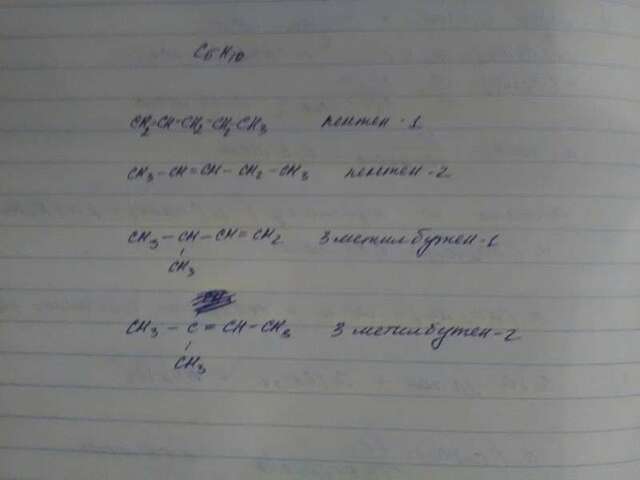 C5H10
CH2=CH-CH2-CH2-CH3 пентен-1
CH3-CH=CH-CH2-CH3 пентен-2
CH3-CH-CH=CH2 3 метилбутен-1
CH3
CH3-C=CH-CH3 3 метилбутен-2
CH3